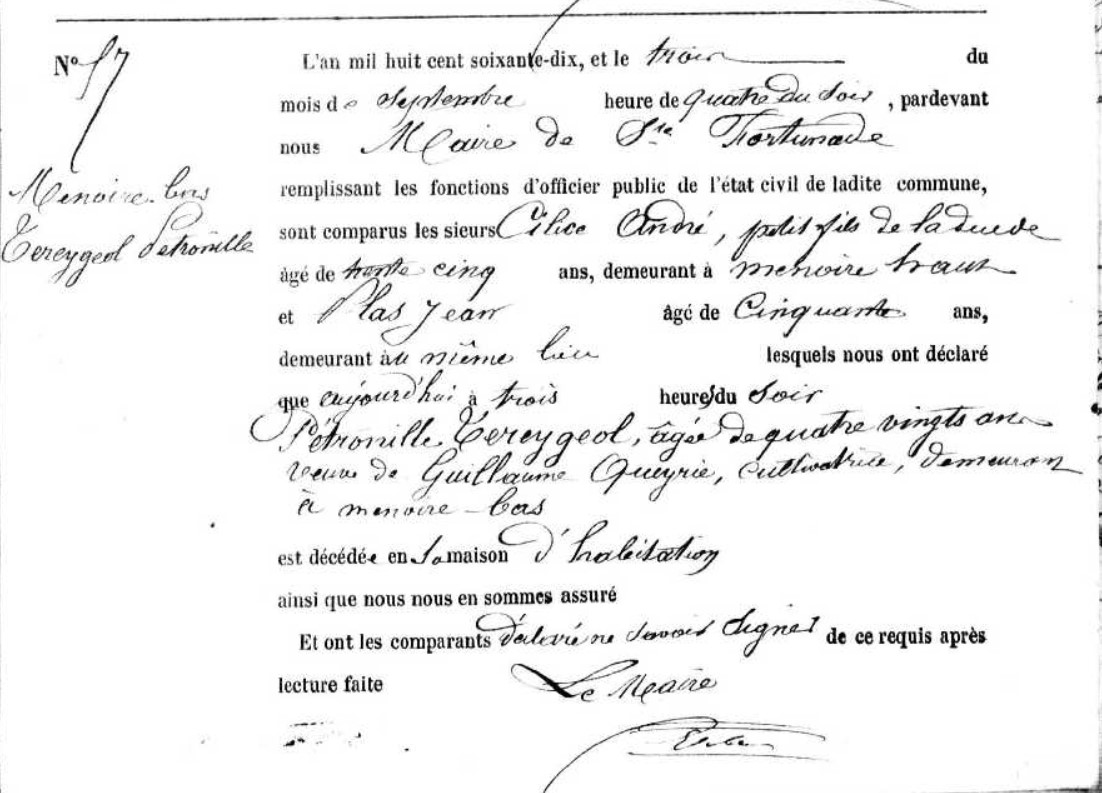 N° 57
Menoire-bas
Tereygeol Petronille
L'an mil huit cent soixante-dix, et le trois du
mois de Septembre heure de quatre du soir, pardevant
nous Maire de Ste Fortunade
remplissant les fonctions d'officier public de l'état civil de ladite commune,
sont comparus les sieurs Cilice André, petit fils de la
âgé de trente cinq ans, demeurant à menoire haut
et Plas Jean âgé de Cinquante ans,
demeurant au même lieu lesquels nous ont déclaré
que aujourd'hui à trois heures du Soir
Pétronille Tereygeol, âgée de quatre vingts ans
veuve de Guillaume Queyrie, cultivatrice, demeuran
à menoire-bas
est décédée en sa maison d'habitation
ainsi que nous nous en sommes assuré
Et ont les comparants déclaré ne savoir Signer de ce requis après
lecture faite Le Maire